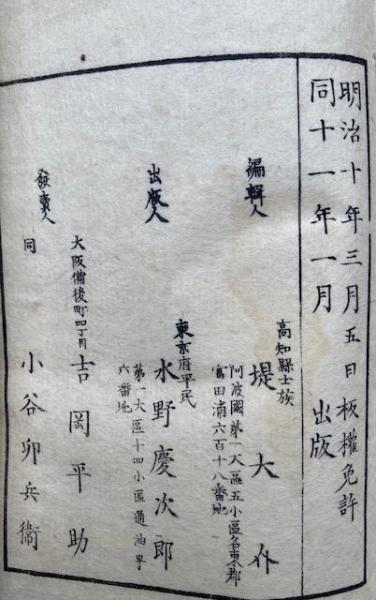 明治十年三月五日板權免許
同十一年一月　出版
編輯人
高知縣士族
堤大介
阿波國第一大區五小區名東郡
富田浦六百十八番地
出版人
東京府平民
水野慶次郎
第一大區十四小區通油町
六番地
發賣人
大阪備後町四丁目
吉岡平助
同
小谷卯兵衛